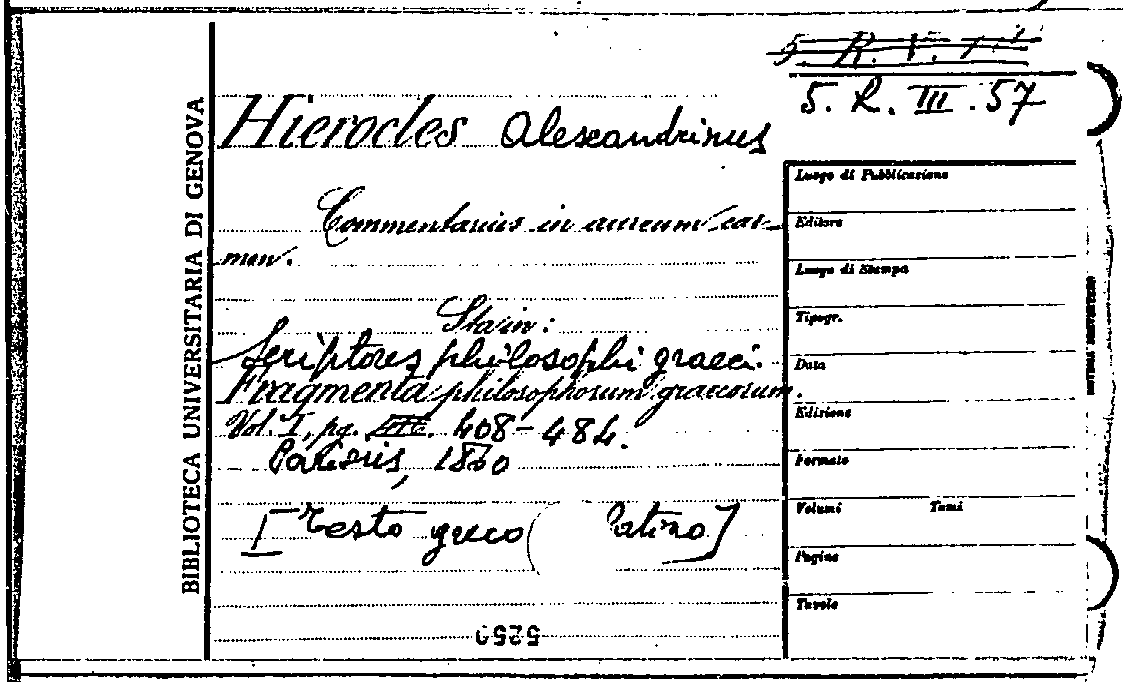 5. R. III. 57
BIBLIOTECA UNIVERSITARIA DI GENOVA
Hierocles Alexandrinus
Commentarius in aureum car-
men.
Sta in:
Scriptores philosophi graeci.
Fragmenta philosophorum graecorum.
Vol. I, pg. 408-484.
Parisiis, 1860
[Testo greco ( latino]
5250
Luogo di Pubblicazione
Editore
Luogo di Stampa
Tipogr.
Data
Edizione
Formato
Volumi Tomi
Pagine
Tavole